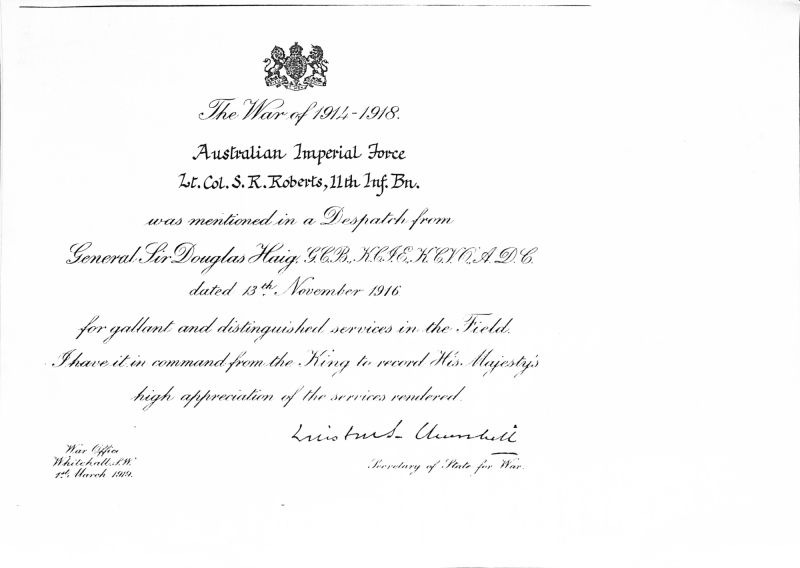 The War of 1914-1918.
Australian Imperial Force
Lt. Col. S. R. Roberts, 11th Inf. Bn.
was mentioned in a Despatch from
General Sir Douglas Haig, G.C.B., K.C.I.E., K.C.V.O., A.D.C.
dated 13th November 1916
for gallant and distinguished services in the Field.
I have it in command from the King to record His Majesty's
high appreciation of the services rendered.
Winston S. Churchill
Secretary of State for War.
War Office
Whitehall, S.W.
1st March 1919.